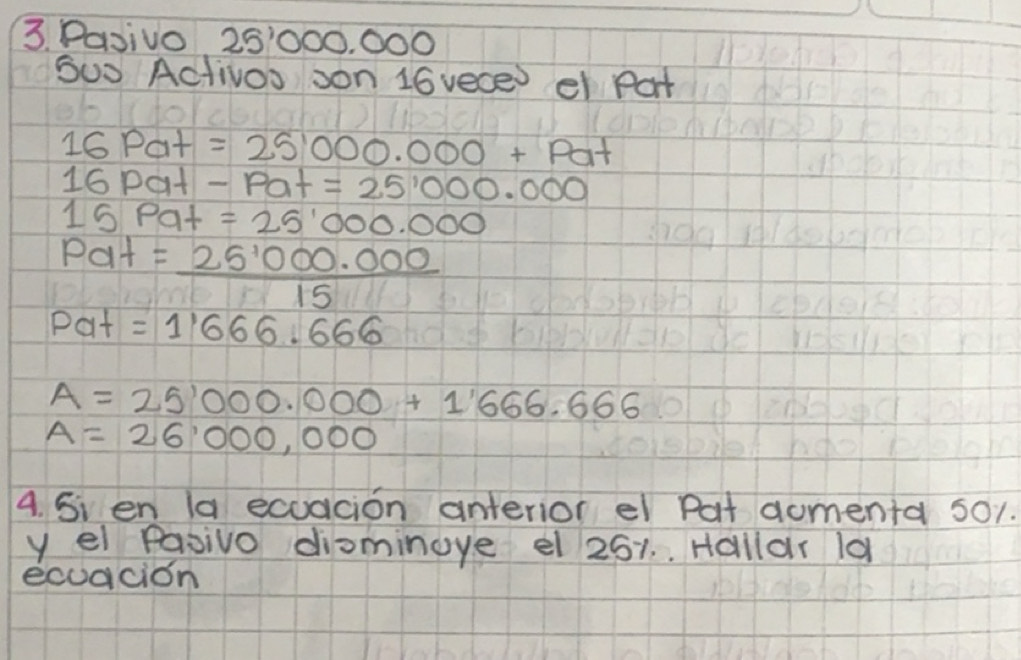 3. Pasivo 25'000.000
Sus Activos son 16 veces el Pat
16 Pat = 25'000.000 + Pat
16 Pat - Pat = 25'000.000
15 Pat = 25'000.000
Pat = 25'000.000
15
Pat = 1'666.666
A = 25'000.000 + 1'666.666
A = 26'000,000
4. Si en la ecuación anterior el Pat aumenta 50%.
y el Pasivo disminuye el 25%. Hallar la
ecuación